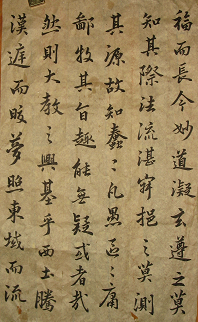 福而長今妙道凝玄遵之莫
知其際法流湛寂挹之莫測
其源故知蠢〻凡愚區〻庸
鄙牧其旨趣能無疑或者哉
然則大教之興基乎西土騰
漢庭而皎夢照東域而流